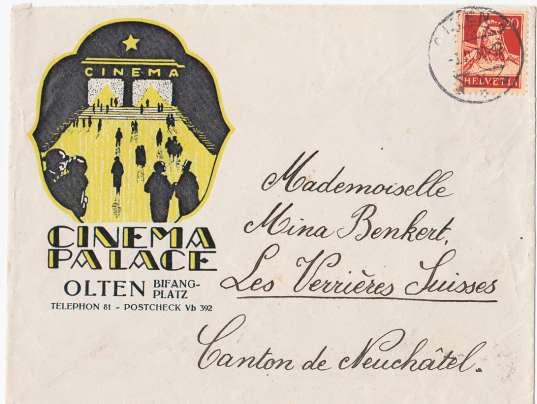 CINEMA
20
HELVETIA
CINEMA
PALACE
OLTEN BIFANG-
PLATZ
TELEPHON 81 - POSTCHECK Vb 392
Mademoiselle
Mina Benkert,
Les Verrières Suisses
Canton de Neuchâtel.